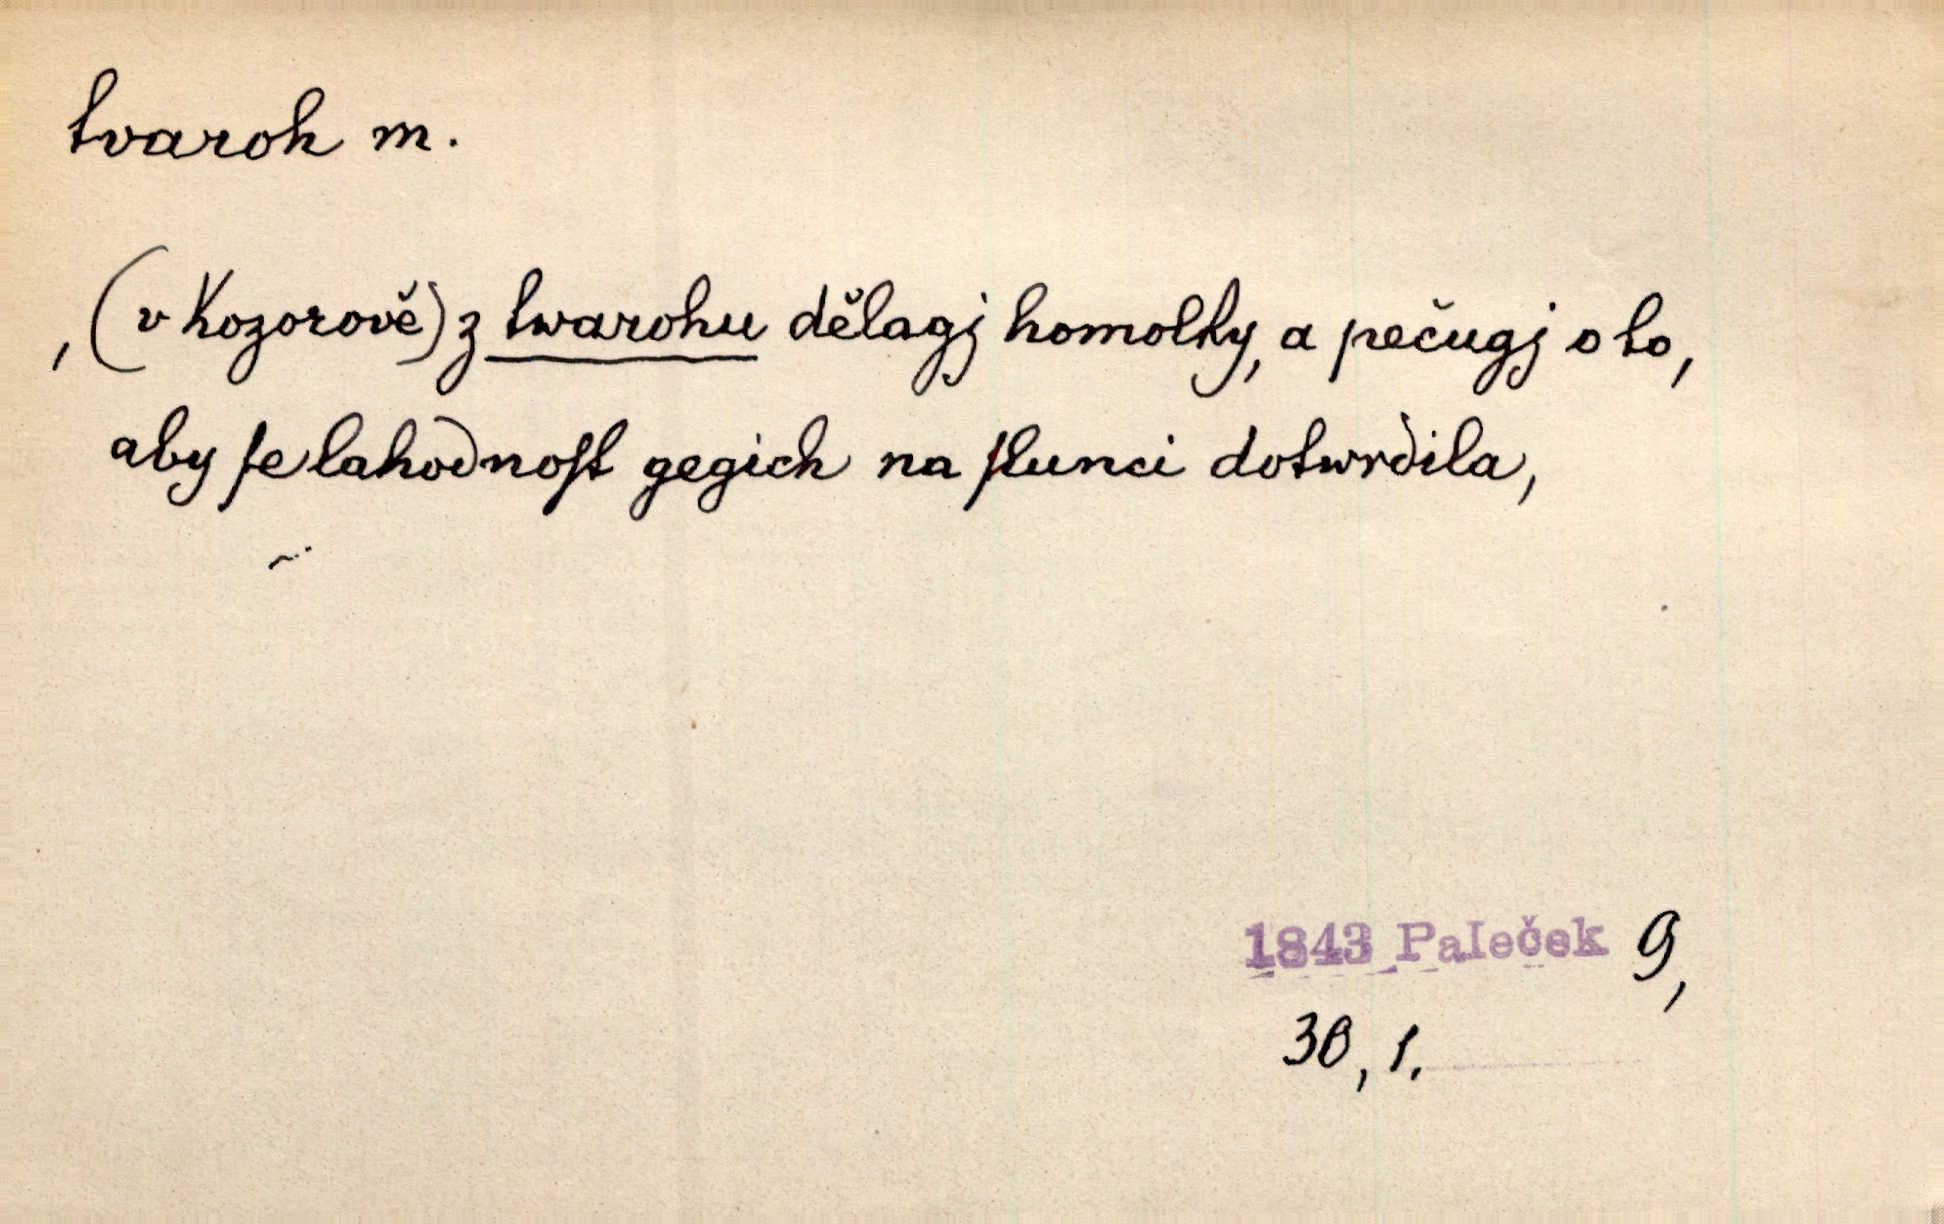 tvaroh m.
, (v Kozorově) z twarohu dělagj homolky, a pečugj o to,
aby ſe lahodnoſt gegich na ſlunci dotwrdila,
1843 Paleček 9,
30, 1.